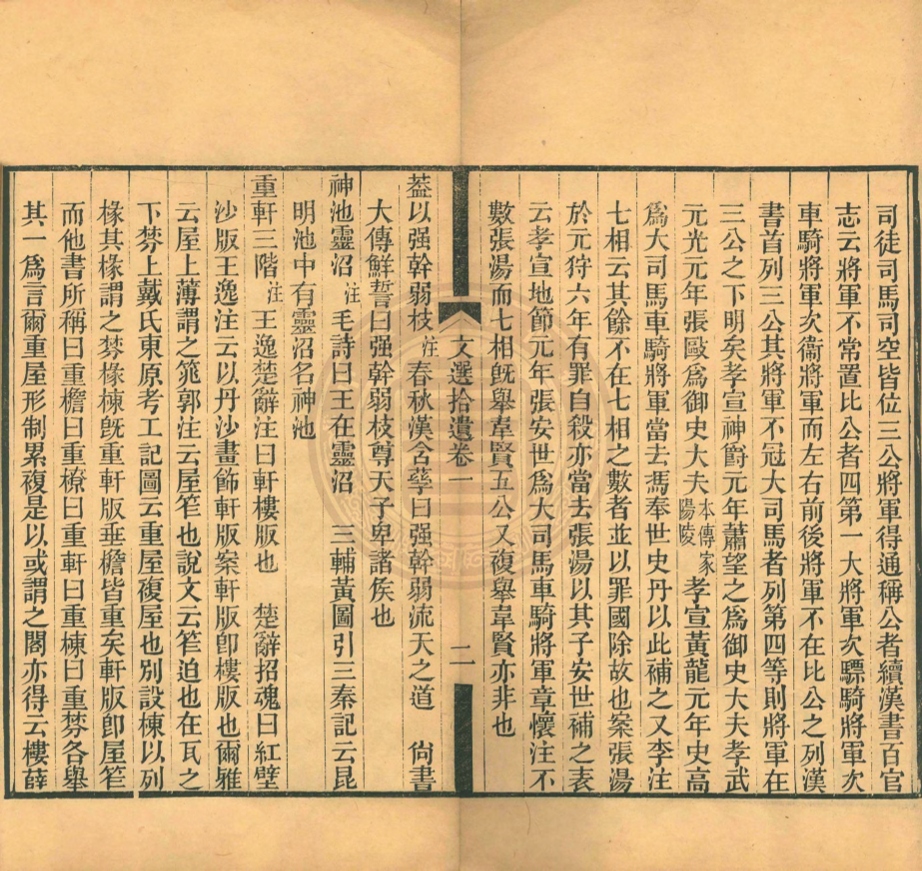 司徒司馬司空皆位三公將軍得通稱公者續漢書百官
志云將軍不常置比公者四第一大將軍次驃騎將軍次
車騎將軍次衞將軍而左右前後將軍不在比公之列漢
書首列三公其將軍不冠大司馬者列第四等則將軍在
三公之下明矣孝宣神爵元年蕭望之爲御史大夫孝武
元光元年張歐爲御史大夫本傳家陽陵孝宣黃龍元年史高
爲大司馬車騎將軍當去馮奉世史丹以此補之又李注
七相云其餘不在七相之數者並以罪國除故也案張湯
於元狩六年有罪自殺亦當去張湯以其子安世補之表
云孝宣地節元年張安世爲大司馬車騎將軍章懷注不
數張湯而七相旣舉韋賢五公又複舉韋賢亦非也
文選拾遺卷一
二
葢以强幹弱枝注春秋漢含孳曰强幹弱流天之道 尙書
大傳鮮誓曰强幹弱枝尊天子卑諸矦也
神池靈沼注毛詩曰王在靈沼 三輔黃圖引三秦記云昆
明池中有靈沼名神池
重軒三階注王逸楚辭注曰軒樓版也 楚辭招魂曰紅壁
沙版王逸注云以丹沙畫飾軒版案軒版卽樓版也爾雅
云屋上薄謂之筄郭注云屋笮也說文云笮迫也在瓦之
下棼上戴氏東原考工記圖云重屋複屋也別設棟以列
椽其椽謂之棼椽棟旣重軒版垂檐皆重矣軒版卽屋笮
而他書所稱曰重檐曰重橑曰重軒曰重棟曰重棼各舉
其一爲言爾重屋形制累複是以或謂之閣亦得云樓薛